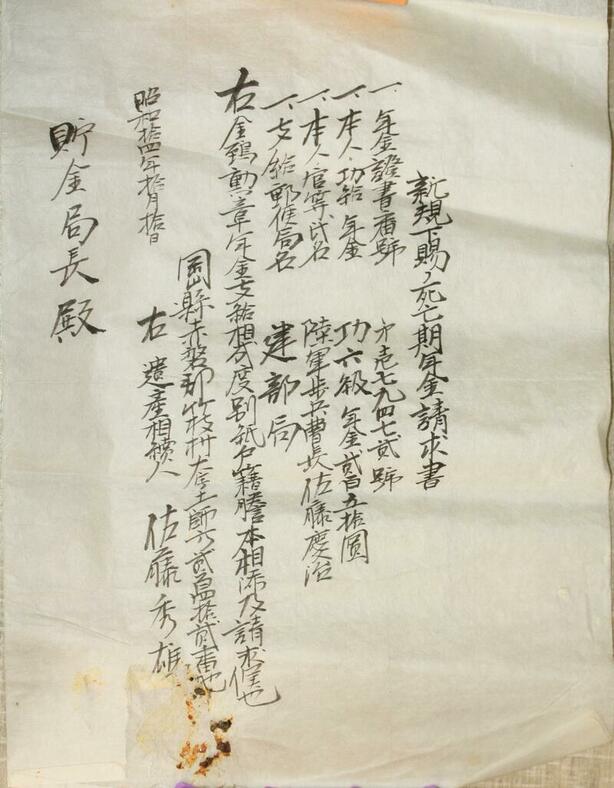 新規下賜ノ死亡期年金請求書
一、年金證書番號 第壱七九四七貳號
一、本人ノ功給年金 功六級年金貳百五拾圓
一、本人ノ官等氏名 陸軍歩兵曹長佐藤慶治
一、支給郵便局名 建部局
右金鵄勲章年金支給相成度別紙戸籍謄本相添及請求候也
岡山縣赤磐郡竹枝村大字土師方貳百四拾貳番地
右 遺産相續人 佐藤秀雄
昭和拾四年拾月拾日
貯金局長殿